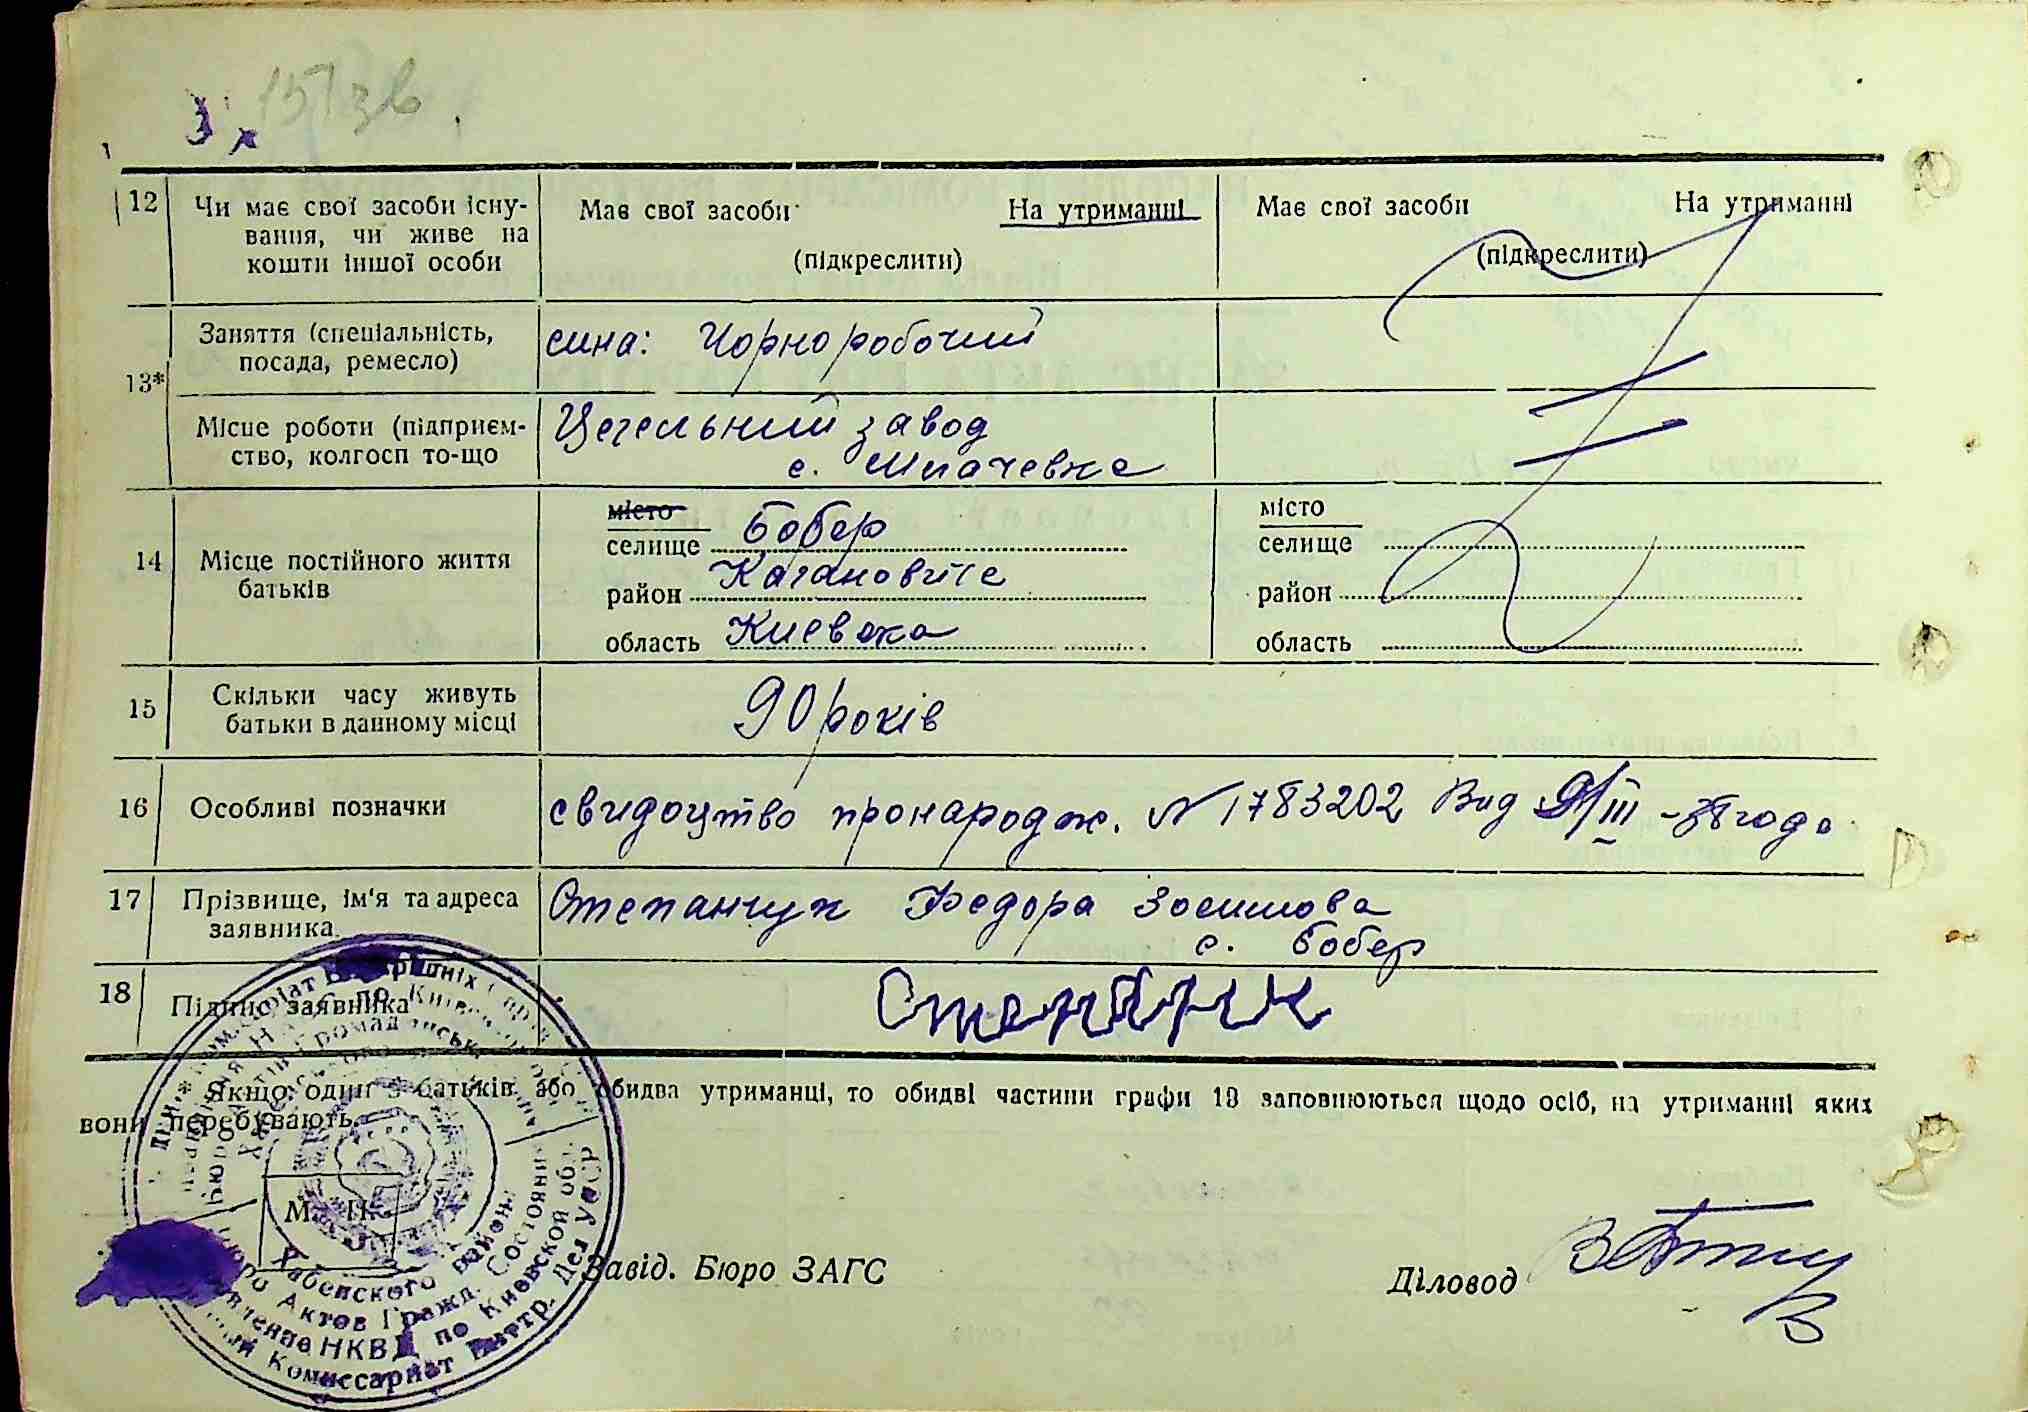 151 зв.
12
Чи має свої засоби існу-
вання, чи живе на
кошти іншої особи
Має свої засоби На утриманні
(підкреслити)
Має свої засоби На утриманні
(підкреслити)
13*
Заняття (спеціальність,
посада, ремесло)
сина: Чорноробочий
Місце роботи (підприєм-
ство, колгосп то-що
Цегельний завод
с.
14
Місце постійного життя
батьків
місто
селище Бобер
район Кагановичс
область Киевска
місто
селище
район
область
15
Скільки часу живуть
батьки в данному місці
90 років
16
Особливі позначки
свидоцтво пронародж. N 1783202 Вид
17
Прізвище, ім'я та адреса
заявника
Степанчук Федора Зосимова
с. Бобер
18
Підпис заявника
Якщо один з батьків або обидва утриманці, то обидві частини графи 13 заповнюються щодо осіб, на утриманні яких
вони перебувають.
М. П.
Хабенского району
Бюро Актов Гражд. Состояния
НКВД по Киевской обл.
Комиссариат Внутр. Дел УССР
Завід. Бюро ЗАГС
Діловод